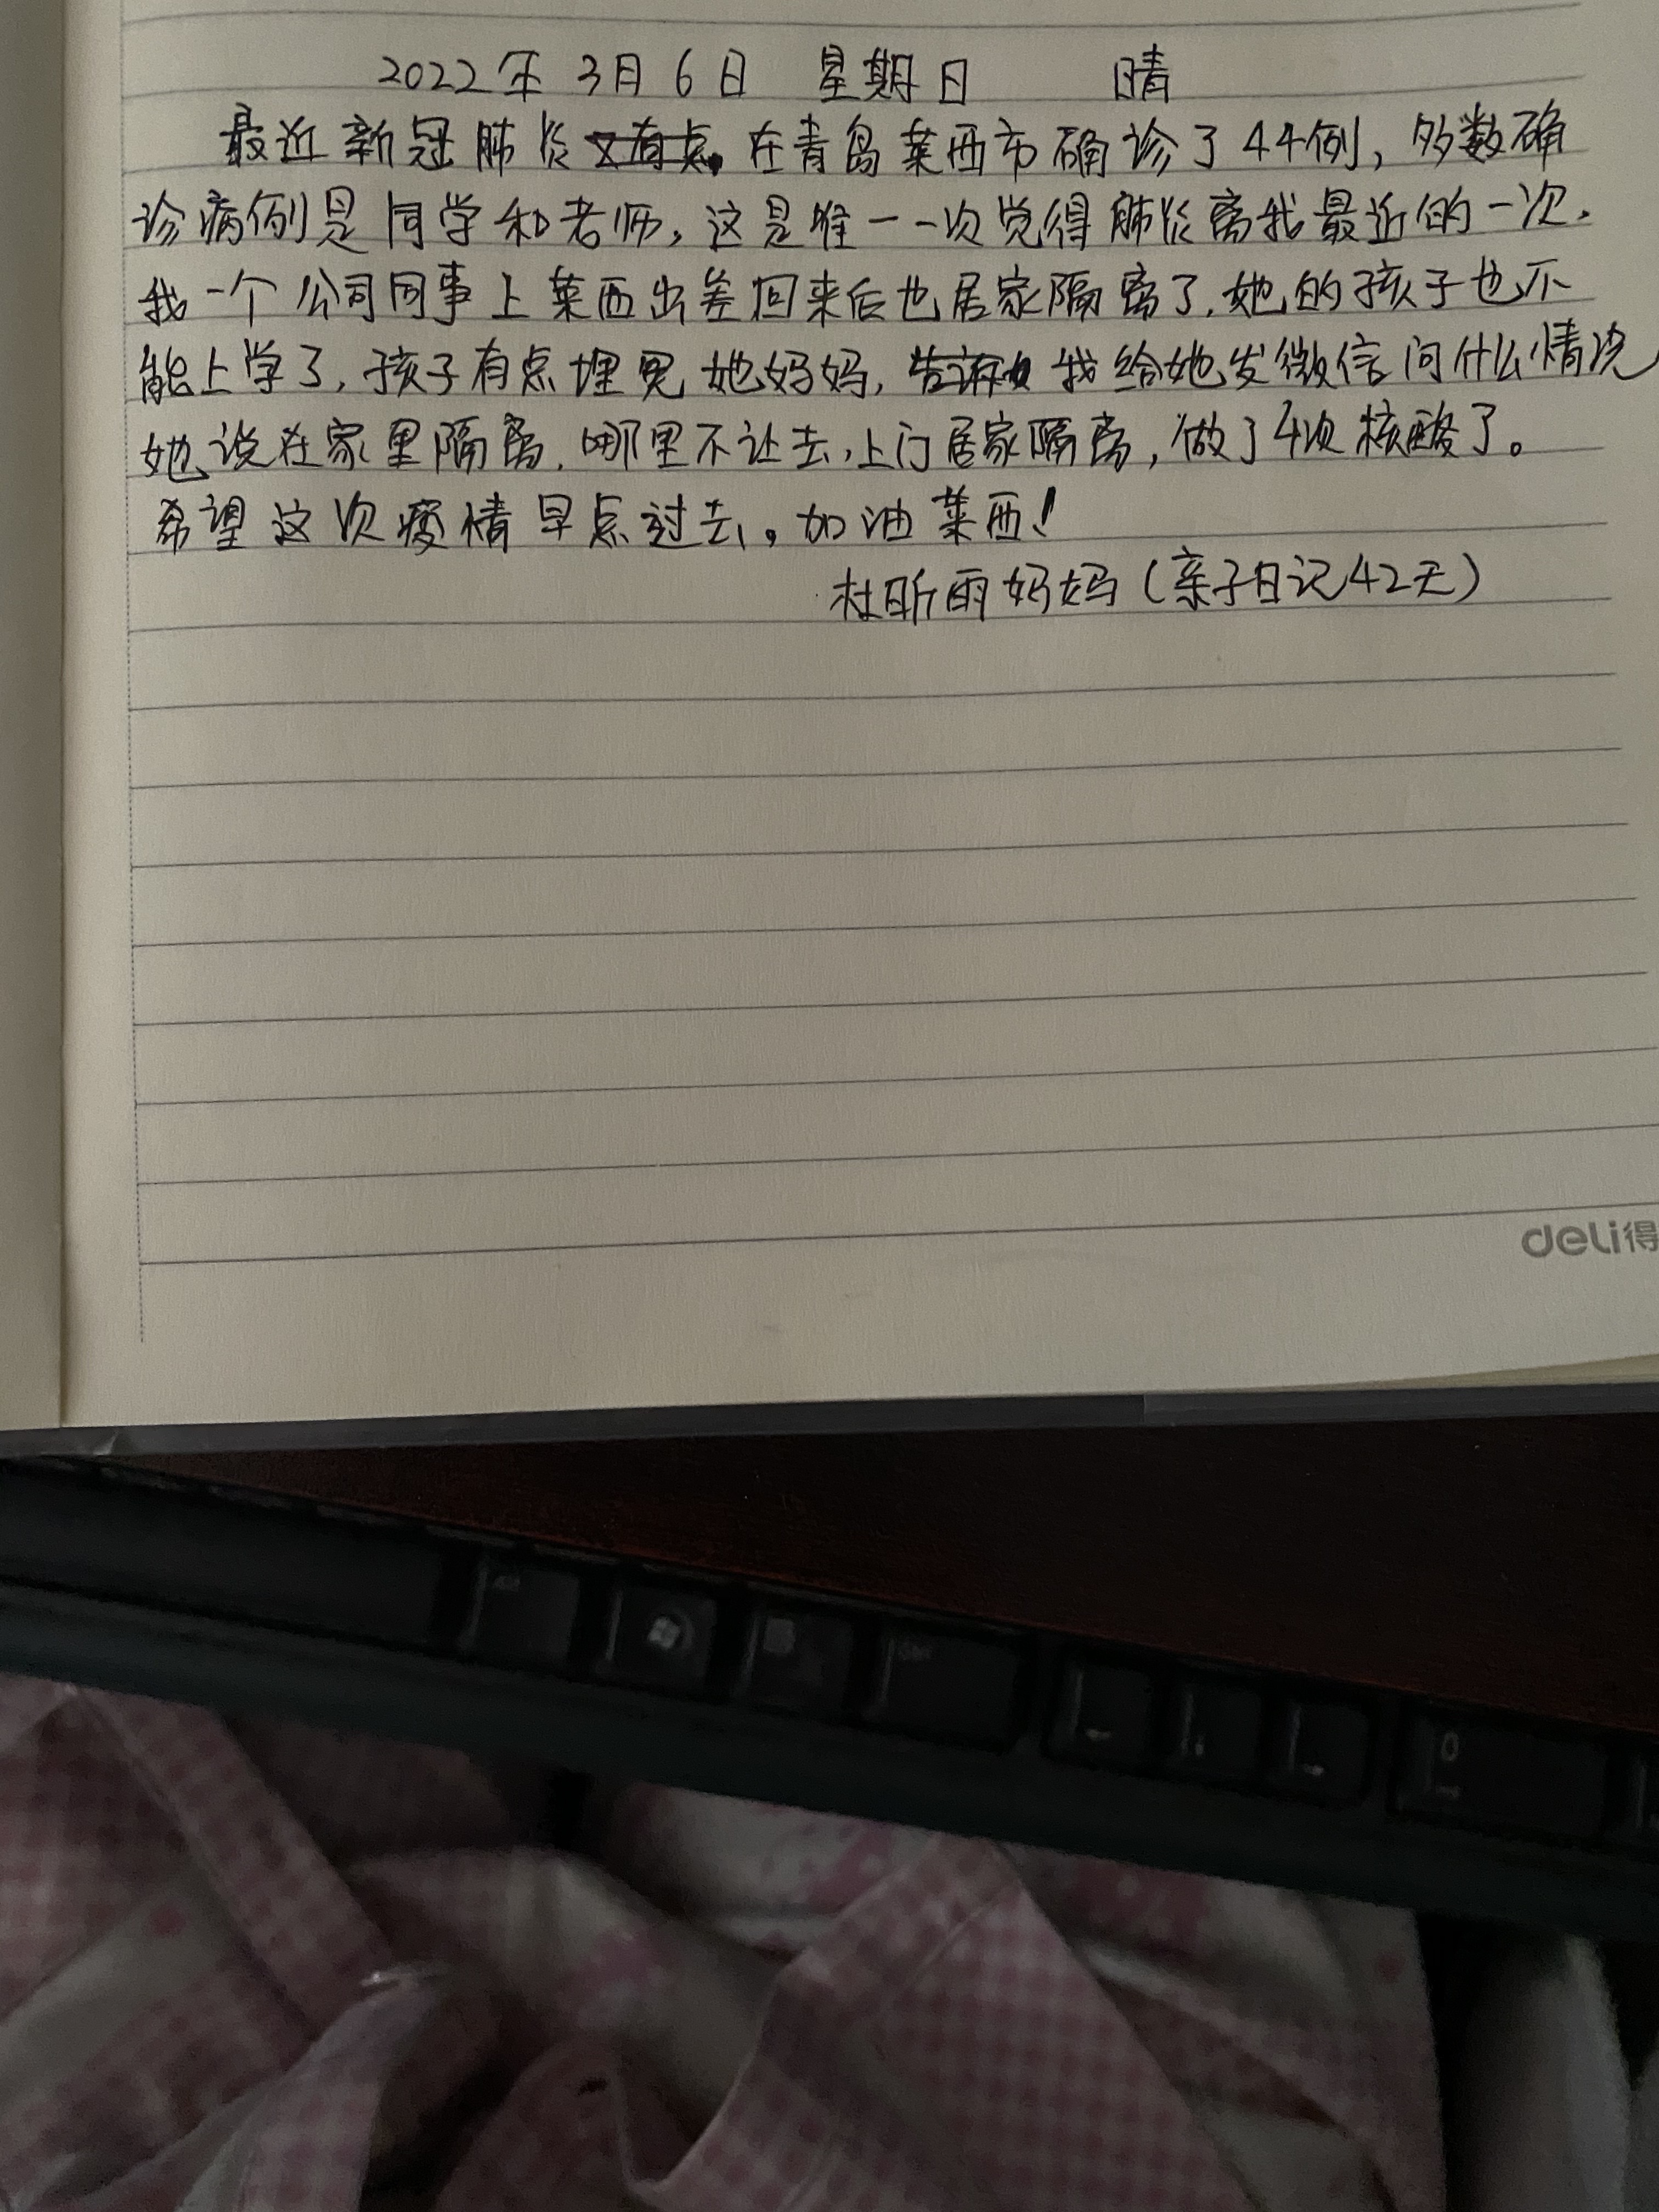 2022年 3月 6日 星期日 晴
最近新冠肺炎 在青岛莱西市确诊了44例，多数确
诊病例是同学和老师，这是唯一一次觉得肺炎离我最近的一次.
我一个公司同事上莱西出差回来后也居家隔离了.她的孩子也不
能上学了,孩子有点埋冤她妈妈, 我给她发微信问什么情况
她说在家里隔离.哪里不让去,上门居家隔离,做了4次核酸了。
希望这次疫情早点过去。加油莱西!
杜昕雨妈妈(亲子日记42天)
deli得